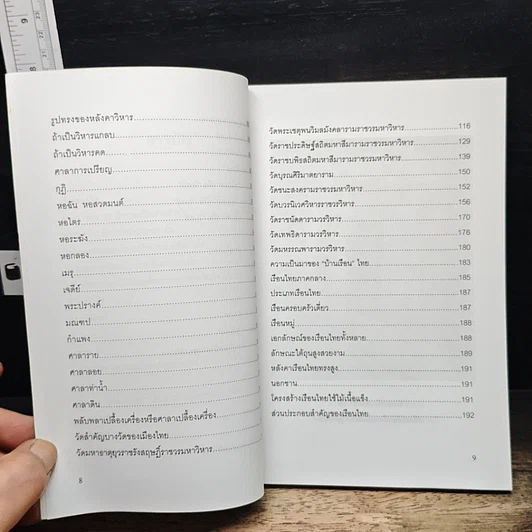 รูปทรงของหลังคาวิหาร
ถ้าเป็นวิหารแกลบ
ถ้าเป็นวิหารคด
ศาลาการเปรียญ
กุฏิ
หอฉัน หอสวดมนต์
หอไตร
หอระฆัง
หอกลอง
เมรุ
เจดีย์
พระปรางค์
มณฑป
กำแพง
ศาลาราย
ศาลาลอย
ศาลาท่าน้ำ
ศาลาดิน
พลับพลาเปลื้องเครื่องหรือศาลาเปลื้องเครื่อง
วัดสำคัญบางวัดของเมืองไทย
วัดมหาธาตุยุวราชรังสฤษฎิ์ราชวรมหาวิหาร
8
วัดพระเชตุพนวิมลมังคลารามราชวรมหาวิหาร 116
วัดราชประดิษฐ์สถิตมหาสีมารามราชวรมหาวิหาร 129
วัดราชบพิธสถิตมหาสีมารามราชวรมหาวิหาร 139
วัดบุรณศิริมาตยาราม 150
วัดชนะสงครามราชวรมหาวิหาร 152
วัดบวรนิเวศวิหารราชวรวิหาร 156
วัดราชนัดดารามวรวิหาร 170
วัดเทพธิดารามวรวิหาร 176
วัดมหรรณพารามวรวิหาร 180
ความเป็นมาของ "บ้านเรือน" ไทย 183
เรือนไทยภาคกลาง 185
ประเภทเรือนไทย 187
เรือนครอบครัวเดี่ยว 187
เรือนหมู่ 188
เอกลักษณ์ของเรือนไทยทั้งหลาย 188
ลักษณะใต้ถุนสูงสวยงาม 189
หลังคาเรือนไทยทรงสูง 191
นอกชาน 191
โครงสร้างเรือนไทยใช้ไม้เนื้อแข็ง 191
ส่วนประกอบสำคัญของเรือนไทย 192
9